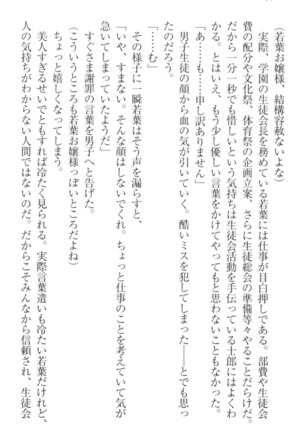 (若葉お嬢様、結構容赦ないよな)
実際、学園の生徒会長を務めている若葉には仕事が目白押しである。部費や生徒会
費の配分や文化祭、体育祭の企画立案、さらに生徒総会の準備等々やることだらけだ。
だから一分一秒でも惜しいという気持ちは生徒会活動を手伝っている士郎にはよくわ
かる。とはいえ、もう少し優しい言葉をかけてやってもと思わないこともなかった。
「あ……も……申し訳ありません」
男子生徒の顔から血の気が引いていく。酷いミスを犯してしまった――とでも思っ
たのだろう。
「……む」
その様子に一瞬若葉はそう声を漏らすと、
「いや、すまない。そんな顔はしないでくれ。ちょっと仕事のことを考えていて気が
急いてしまっていたようだ」
すぐさま謝罪の言葉を男子へと告げた。
(こういうところも若葉お嬢様っぽいところだよね)
ちょっと嬉しくなってしまう。
美人すぎるせいでともすれば冷たく見られる。実際言葉遣いも冷たい若葉だけれど、
人の気持ちがわからない人間ではないのだ。だからこそみんなから信頼され、生徒会